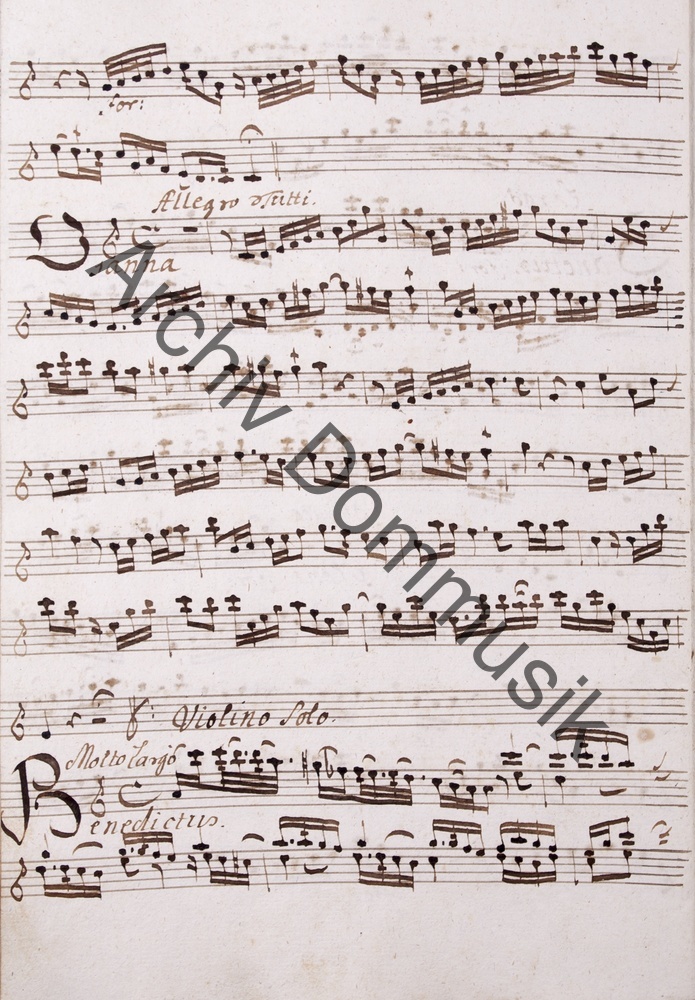 for:
Allegro Tutti.
Osanna
Violino Solo.
Molto Largo
Benedictus.
Archiv Dommusik